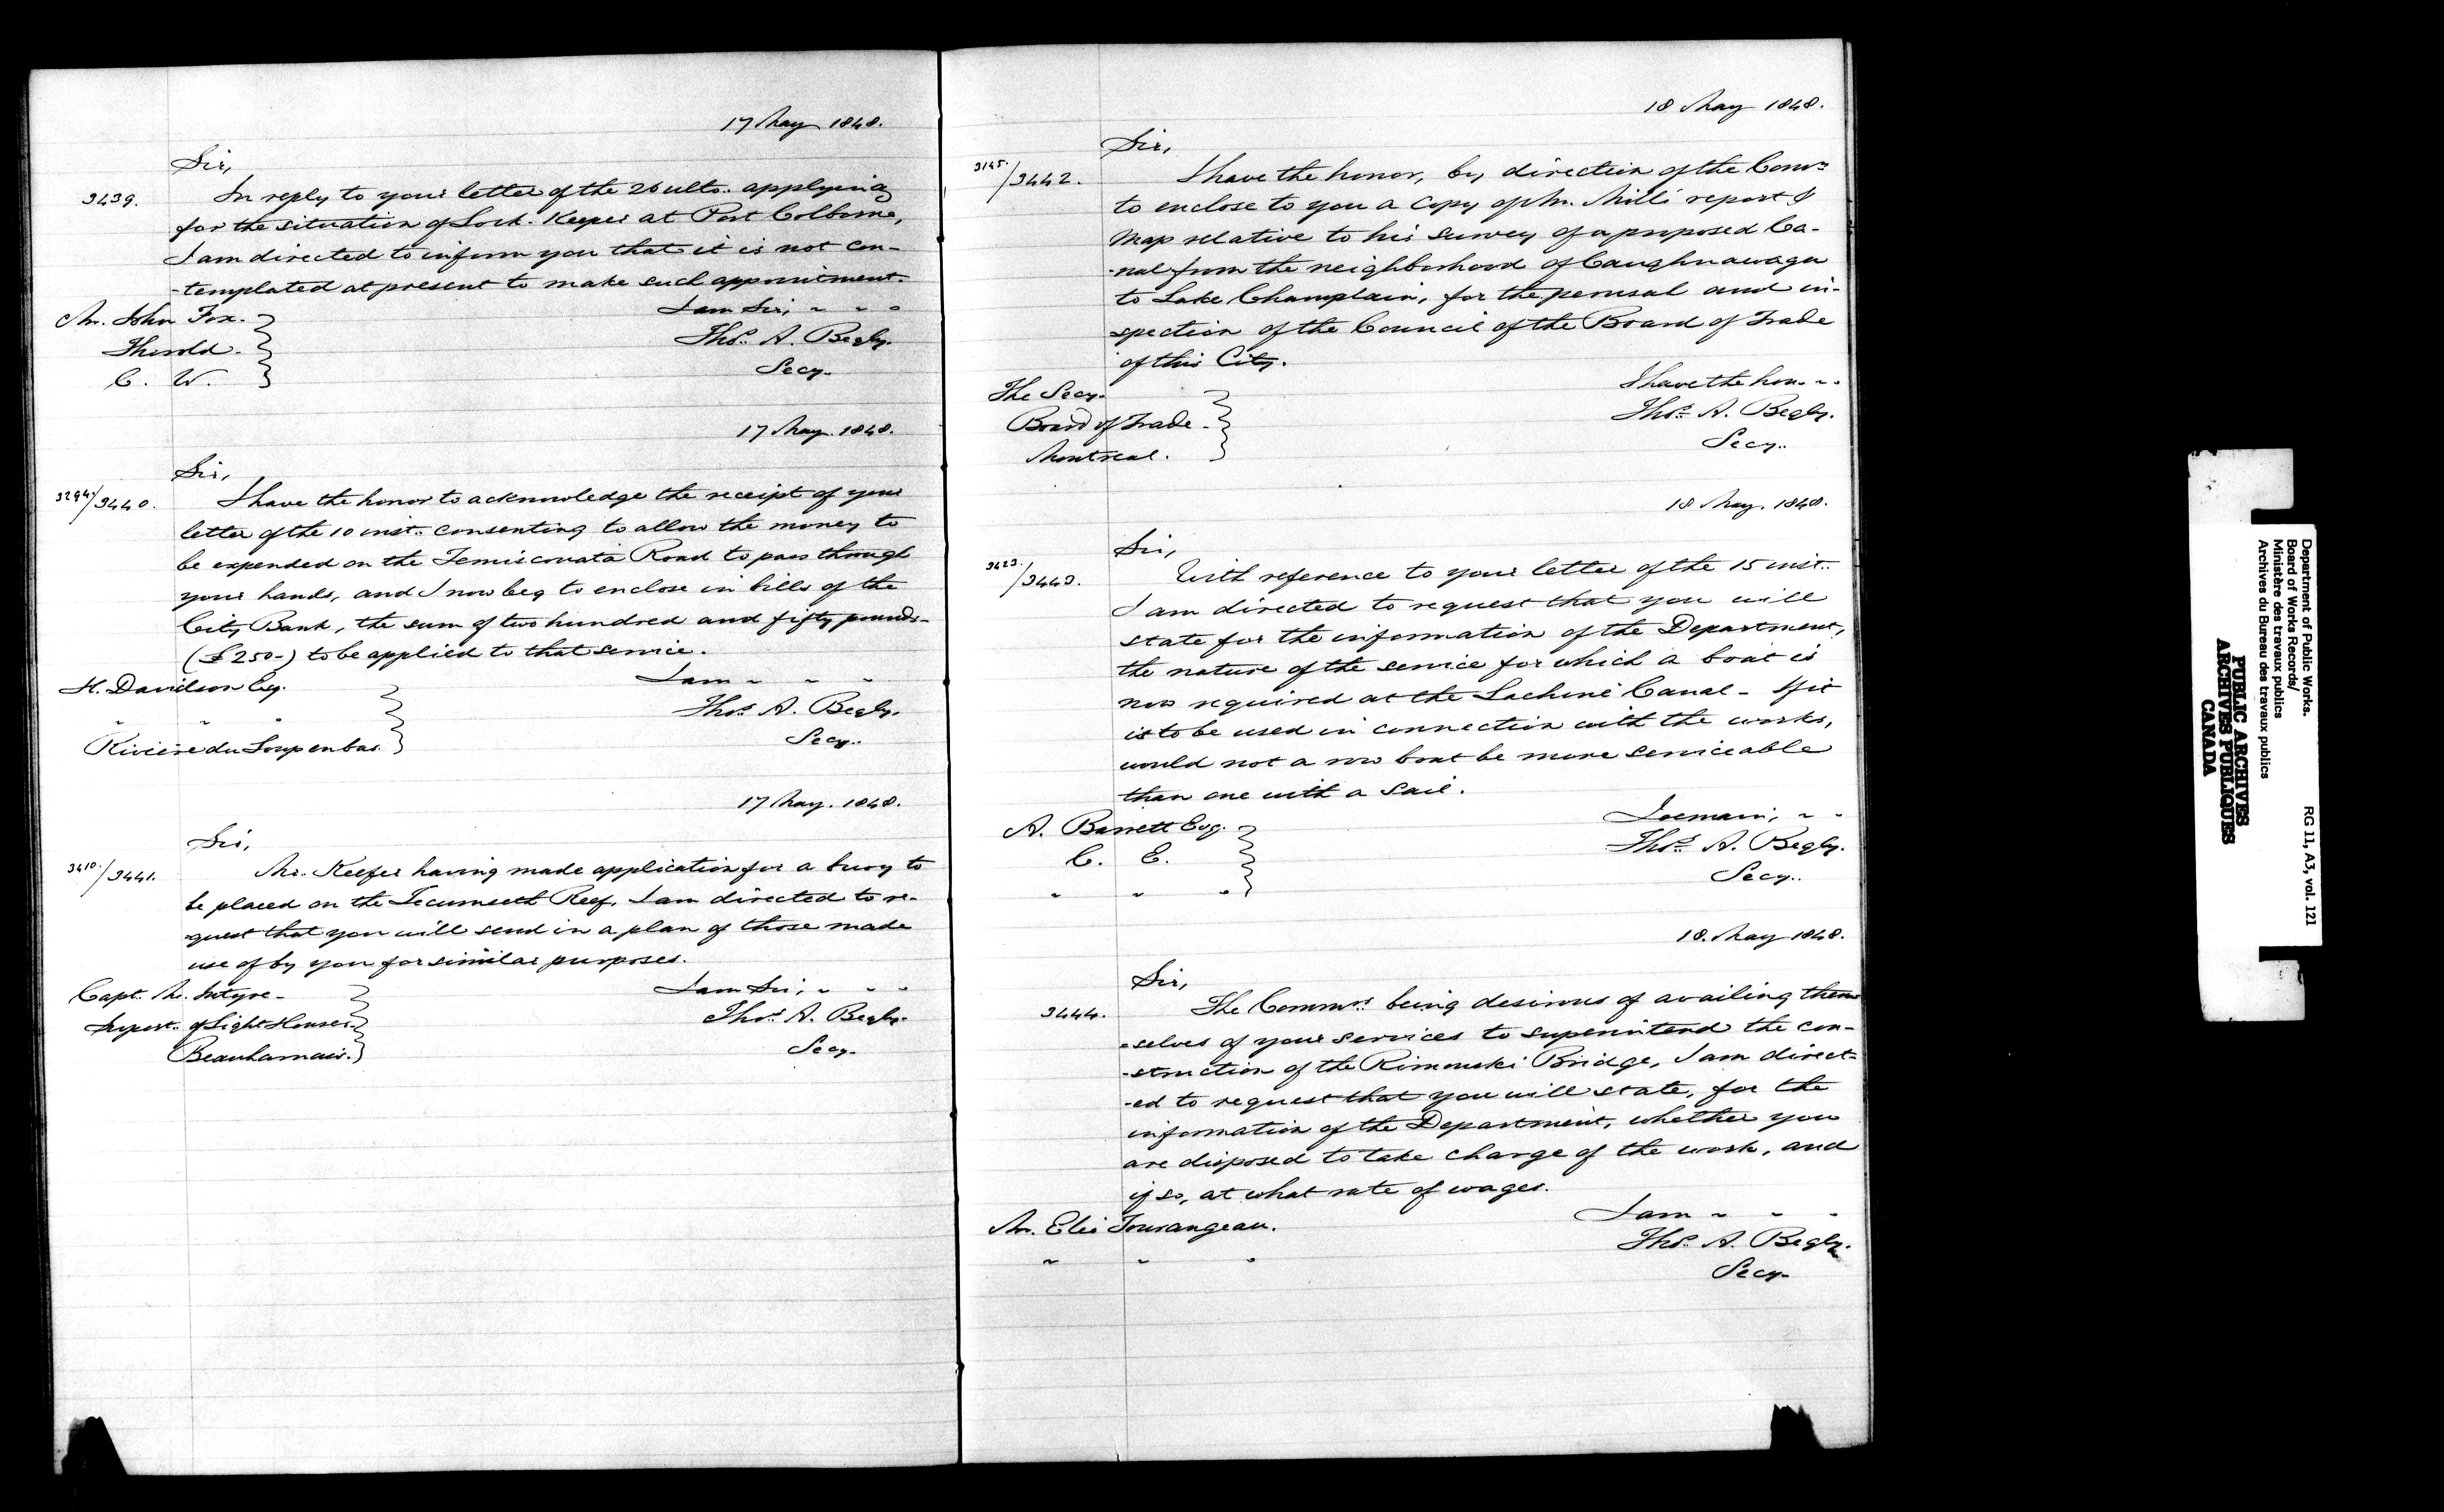 17 May 1848.
Sir,
3439. In reply to your letter of the 26 ulto. applying
for the situation of Lock-Keeper at Port Colborne,
I am directed to inform you that it is not con-
-templated at present to make such appointment.
I am Sir, " " "
Mr. John Fox.
Thos. A. Begly.
Thorold.
Secy.
C. W.
17 May. 1848.
Sir,
3294/3440. I have the honor to acknowledge the receipt of your
letter of the 10 inst. consenting to allow the money to
be expended on the Temiscouata Road to pass through
your hands, and I now beg to enclose in bills of the
City Bank, the sum of two hundred and fifty pounds-
(£250-) to be applied to that service.
I am " " "
H. Davidson Esq.
Thos. A. Begly.
" " "
Secy.
Rivière du Loup en bas.
17 May. 1848.
Sir,
3410/3441. Mr. Keefer having made application for a buoy to
be placed on the Tecumseth Reef, I am directed to re-
-quest that you will send in a plan of those made
use of by you for similar purposes.
I am Sir, " " "
Capt. Mc.Intyre-
Thos. A. Begly.
Supert. of Light Houses.
Secy.
Beauharnais.
18 May 1848.
Sir,
3145/3442. I have the honor, by direction of the Comrs
to enclose to you a copy of Mr. Mills report &
map relative to his survey of a proposed Ca-
-nal from the neighborhood of Caughnawaga
to Lake Champlain, for the perusal and in-
-spection of the Council of the Board of Trade
of this City.
I have the hon. " "
The Secy.
Thos. A. Begly.
Board of Trade.
Secy.
Montreal.
18 May. 1848.
Sir,
3423/3443. With reference to your letter of the 15 inst.
I am directed to request that you will
state for the information of the Department,
the nature of the service for which a boat is
now required at the Lachine Canal - If it
is to be used in connection with the works,
would not a row boat be more serviceable
than one with a sail.
I remain, " "
A. Barrett Esq.
Thos. A. Begly.
C. E.
Secy.
" " "
18. May 1848.
Sir,
3444. The Commrs. being desirous of availing them
-selves of your services to superintend the con-
-struction of the Rimouski Bridge, I am direct-
-ed to request that you will state, for the
information of the Department, whether you
are disposed to take charge of the work, and
if so, at what rate of wages.
I am " " "
Mr. Elie Tourangeau.
Thos. A. Begly.
" " "
Secy.
Department of Public Works.
Board of Works Records/
Ministère des travaux publics
Archives du Bureau des travaux publics
RG 11, A3, vol. 121
PUBLIC ARCHIVES
ARCHIVES PUBLIQUES
CANADA